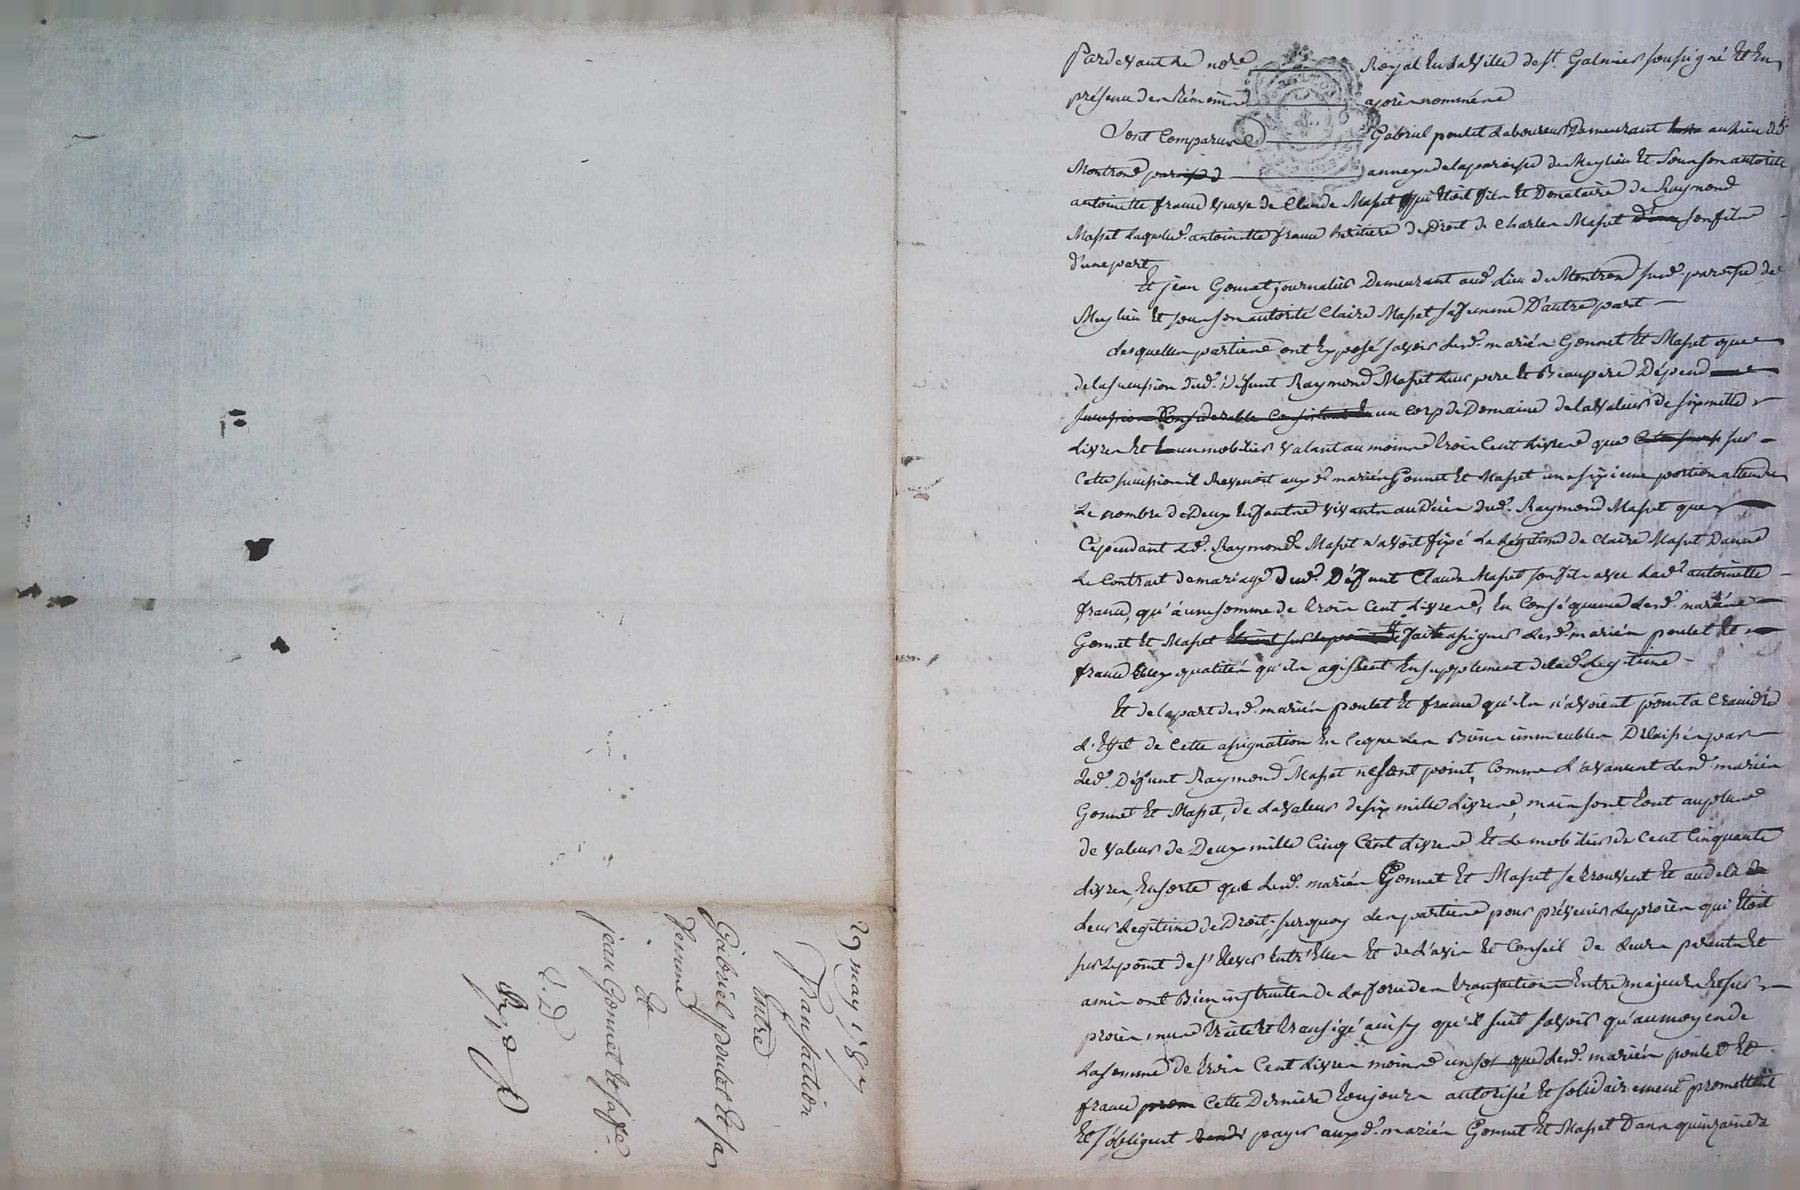 Pardevant Le no.re Royal En la Ville de St. Galmier soussigné Et En
présence des témoins après nommés
Sont Comparus Gabriel poulet Laboureur Demeurant au Lieu de
Montrond annexe de la paroisse de Meylieu Et Sous son autorité
antoinette fraud veuve de Claude Masset qui Etoit fils Et Donataire de Raymond
Masset Laquelle antoinette fraud heritiere de Droit de Charles Masset son fils
d'une part
Et jean Gonnet journalier Demeurant aud. Lieu de Montrond susd. paroisse de
Meylieu Et sous son autorité Claire Masset sa femme D'autre part
Lesquelles parties ont Exposé savoir Lesd. mariés Gonnet Et Masset que
de la succession dud. Défunt Raymond Masset Leur pere Et Beaupere Dépend
un Corp de Domaine de la Valeur de six mille
Livres Et un mobilier Valant au moins trois Cent Livres que sur
Cette succession il Revenoit auxd. mariés Gonnet Et Masset une sixieme portion attendu
Le nombre de Deux Enfants vivants au Décès dud. Raymond Masset que
Cependant Led. Raymond Masset n'avoit fixé La Légitime de Claire Masset Dans
Le Contrat de mariage dud. Défunt Claude Masset son fils avec Lad. antoinette
fraud, qu'à une somme de trois Cent Livres, En Conséquence Lesd. mariés
Gonnet Et Masset faite assigner Lesd. mariés poulet Et
fraud qualités qu'ils agissent En supplement de lad. Legitime
Et de la part desd. mariés poulet Et fraud qu'ils n'avoient point a Craindre
L'Effet de Cette assignation En Ce que Les Biens immeubles Délaissés par
Led. Défunt Raymond Masset ne sont point, Comme L'avancent Lesd. mariés
Gonnet Et Masset, de La Valeur de six mille Livres, mais sont tout au plus
de Valeur de Deux mille Cinq Cent Livres Et Le mobilier de Cent Cinquante
Livres, En sorte que Lesd. mariés Gonnet Et Masset se trouvent Et au dela
Leur Legitime de Droit. sur quoy Les parties pour prévenir Le procès qui Etoit
sur Le point de s'Elever Entr'Elles Et de L'avis Et Conseil de Leurs parents Et
amis ont Bien instruites de La force des transactions Entre majeurs Et sur
procès mus traité Et transigé ainsy qu'il suit savoir qu'au moyen de
La somme de trois Cent Livres moins un sol que Lesd. mariés poulet Et
fraud Cette Derniere toujours autorisée Et solidairement promettent
Et s'obligent payer auxd. mariés Gonnet Et Masset Dans quinzaine
29 may 1787
Transaction
Entre
Gabriel poulet Et sa
femme
Et
jean Gonnet Et sa fe.